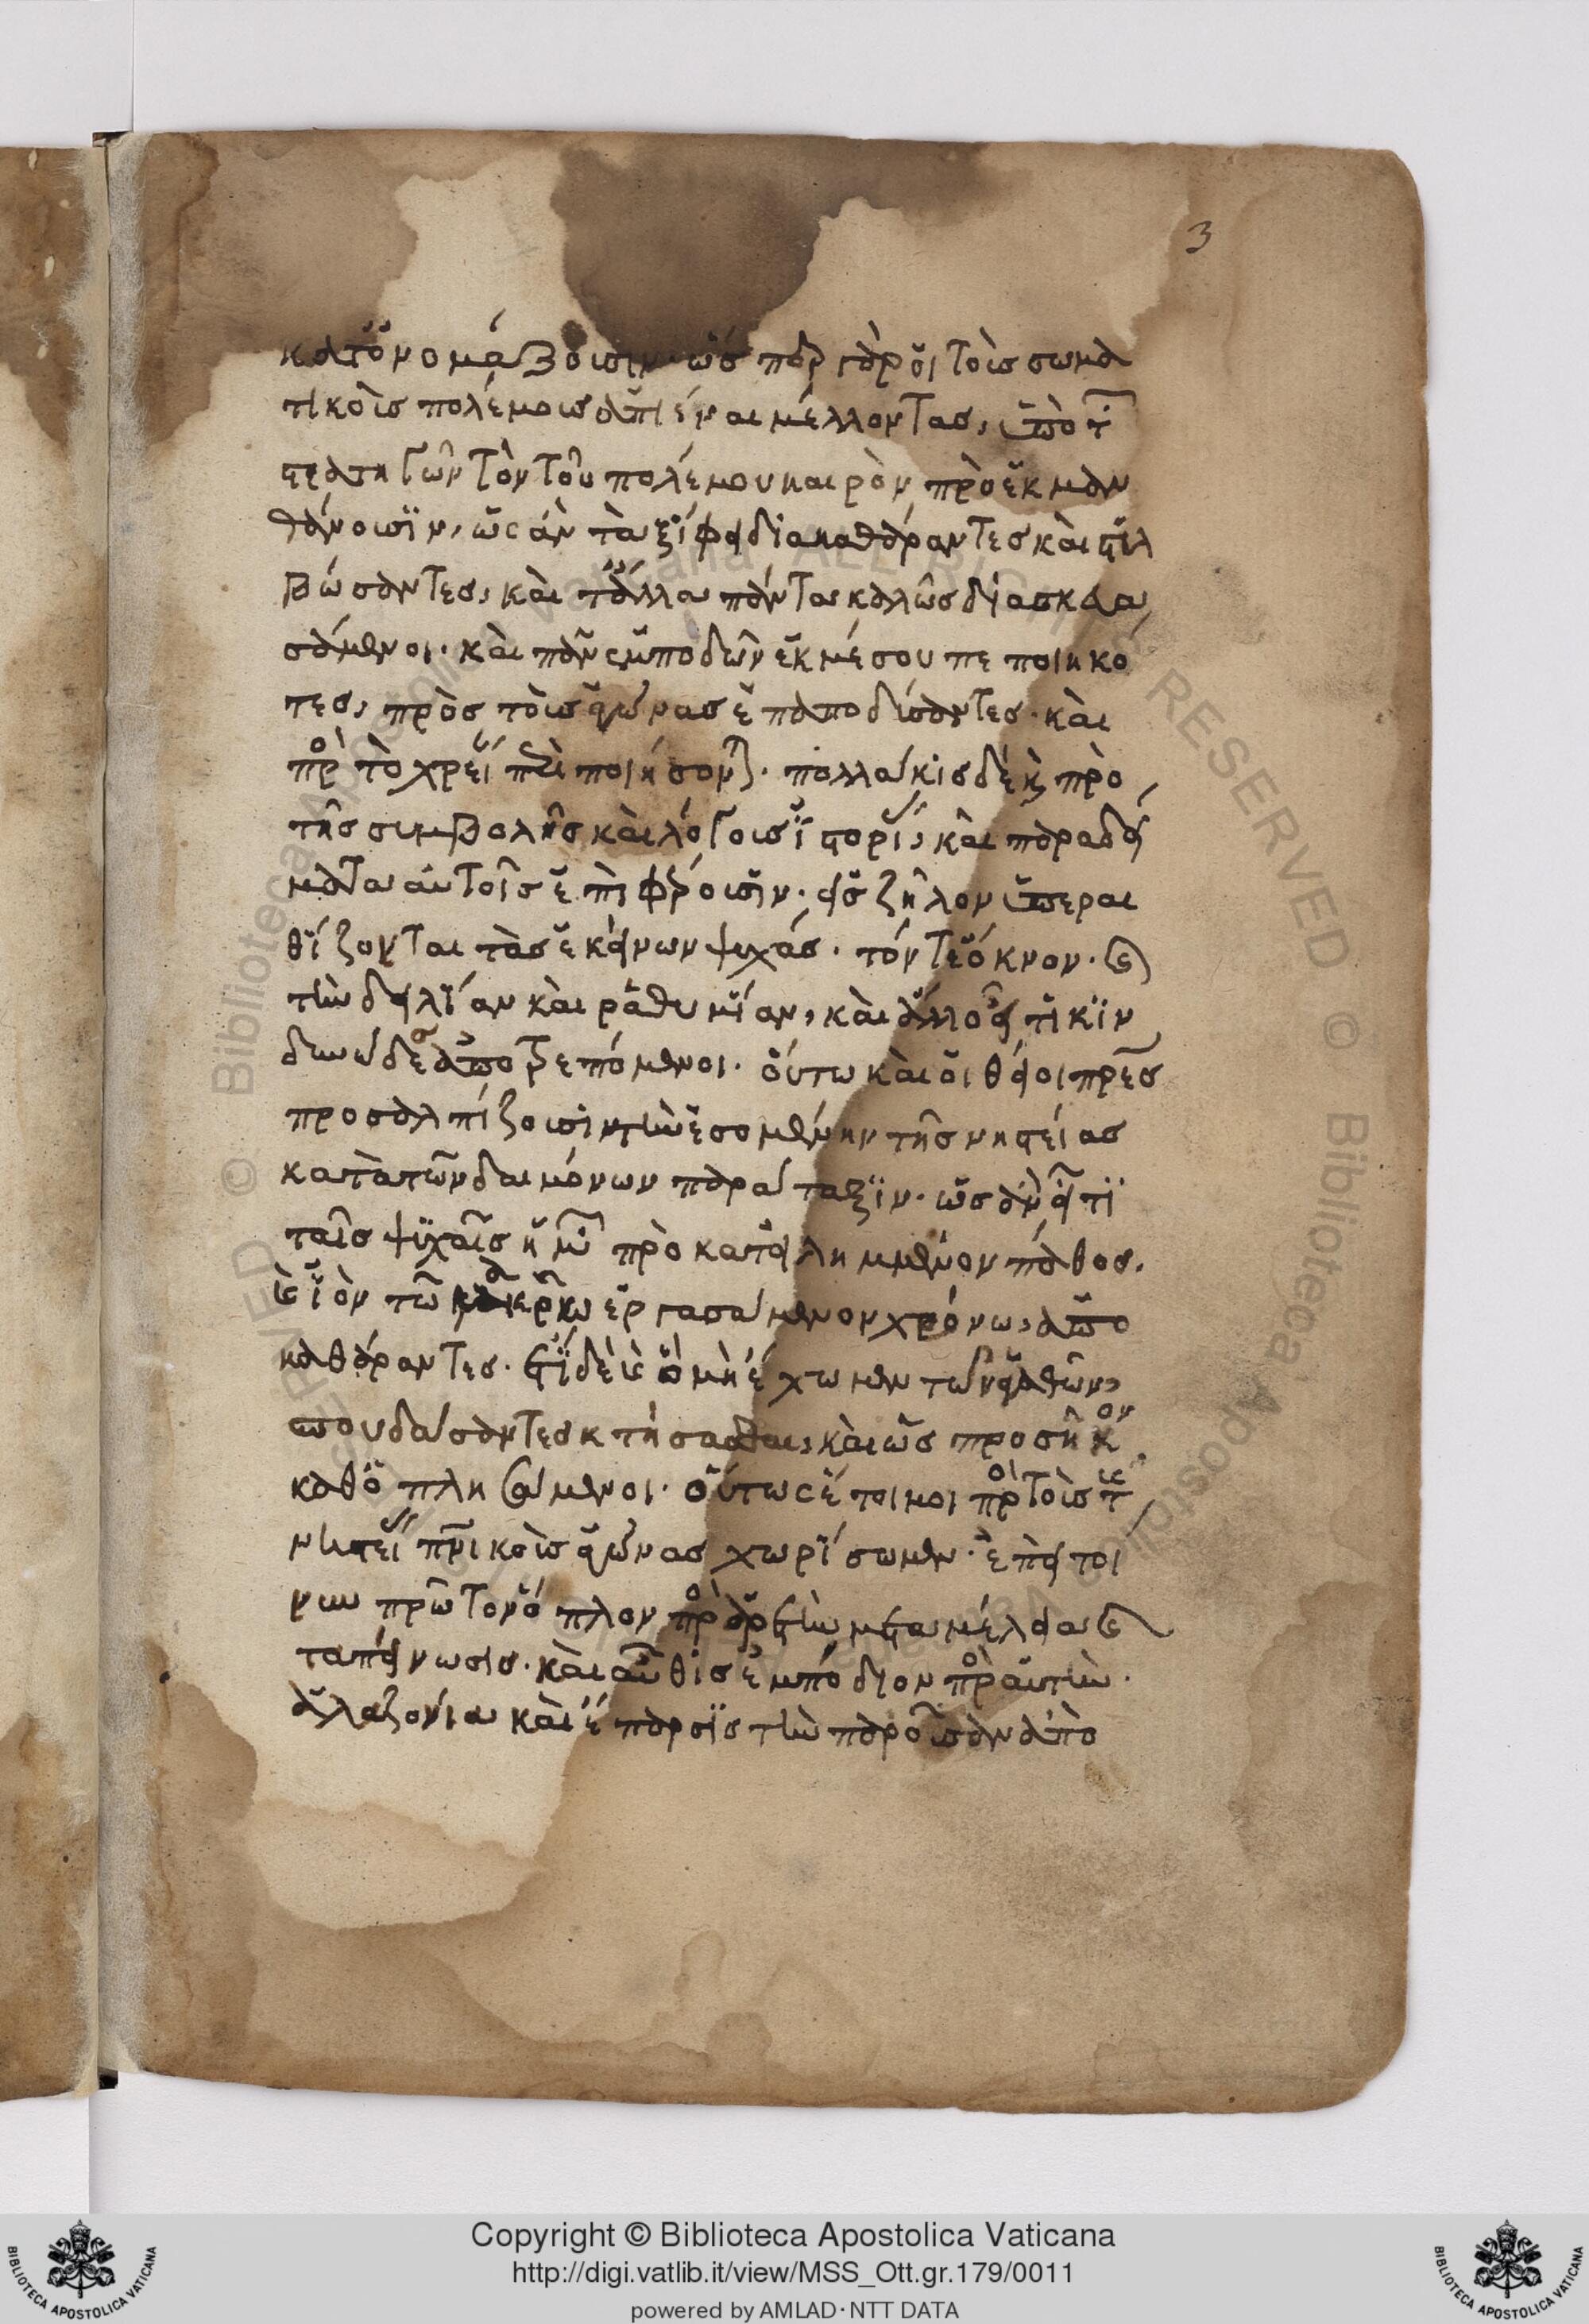 3
κατονομάζουσιν· ὥσπερ γὰρ οἱ τοῖς σωμα
τικοῖς πολέμοις ἀπιέναι μέλλοντας, ὑπὸ τ
στρατηγῶν τὸν τοῦ πολέμου καιρὸν προεκμαν
θάνουσιν, ὡς ἂν τὰ ξίφη διακαθάραντες καὶ στιλ
βώσαντες, καὶ τἄλλα πάντα καλῶς διασκευα
σάμενοι· καὶ πᾶν ἐμποδὼν ἐκ μέσου πεποιηκό
τες, πρὸς τοὺς ἀγῶνας ἐπαποδύσαντες· καὶ
πρὸς τὸ χρεί ποιήσον· πολλάκις δὲ κ πρὸ
τῆς συμβολῆς καὶ λόγους ἱστορί, καὶ παραδεί
ματα αὐτοῖς ἐπιφέρουσιν· εἰς ζῆλον ὑπεραι
θίζονται τὰς ἐκείνων ψυχάς· τόν τε ὄκνον· καὶ
τὴν δειλίαν καὶ ῥαθυμίαν, καὶ ἄλλο εἴ τι κιν
δυνῶδες ἀποτρεπόμενοι· οὕτω καὶ οἱ θεῖοι πρες
προσαλπίζουσιν τὴν ἐσομένην τῆς νηστείας
κατὰ τῶν δαιμόνων παράταξιν· ὡς ἂν εἴ τι
ταῖς ψυχαῖς ἡμ προκατειλημμένον πάθος·
καὶ ἰὸν τῶ μακρῶ ἐργασάμενον χρόνω, ἀπο
καθάραντες· εἰ δὲ καὶ ὃ μὴ ἔχωμεν τῶν ἀγαθῶν,
σπουδάσαντες κτήσασθαι, καὶ ὡς προσῆκον
καθοπλησάμενοι· οὕτως ἕτοιμοι πρὸς τοὺς τ
νηστεί πνικοὺς ἀγῶνας χωρίσωμεν· ἐπεὶ τοι
νυν πρῶτον ὅπλον πρὸς ἀρετὴν μεταμέλεια καὶ
ταπείνωσις· καὶ αὖθις ἐμπόδιον πρὸς αὐτὴν·
ἀλαζονία καὶ ἔπαρσις τὴν παροῦσαν ἀπὸ
Copyright © Biblioteca Apostolica Vaticana
http://digi.vatlib.it/view/MSS_Ott.gr.179/0011
powered by AMLAD·NTT DATA
BIBLIOTECA APOSTOLICA VATICANA
BIBLIOTECA APOSTOLICA VATICANA